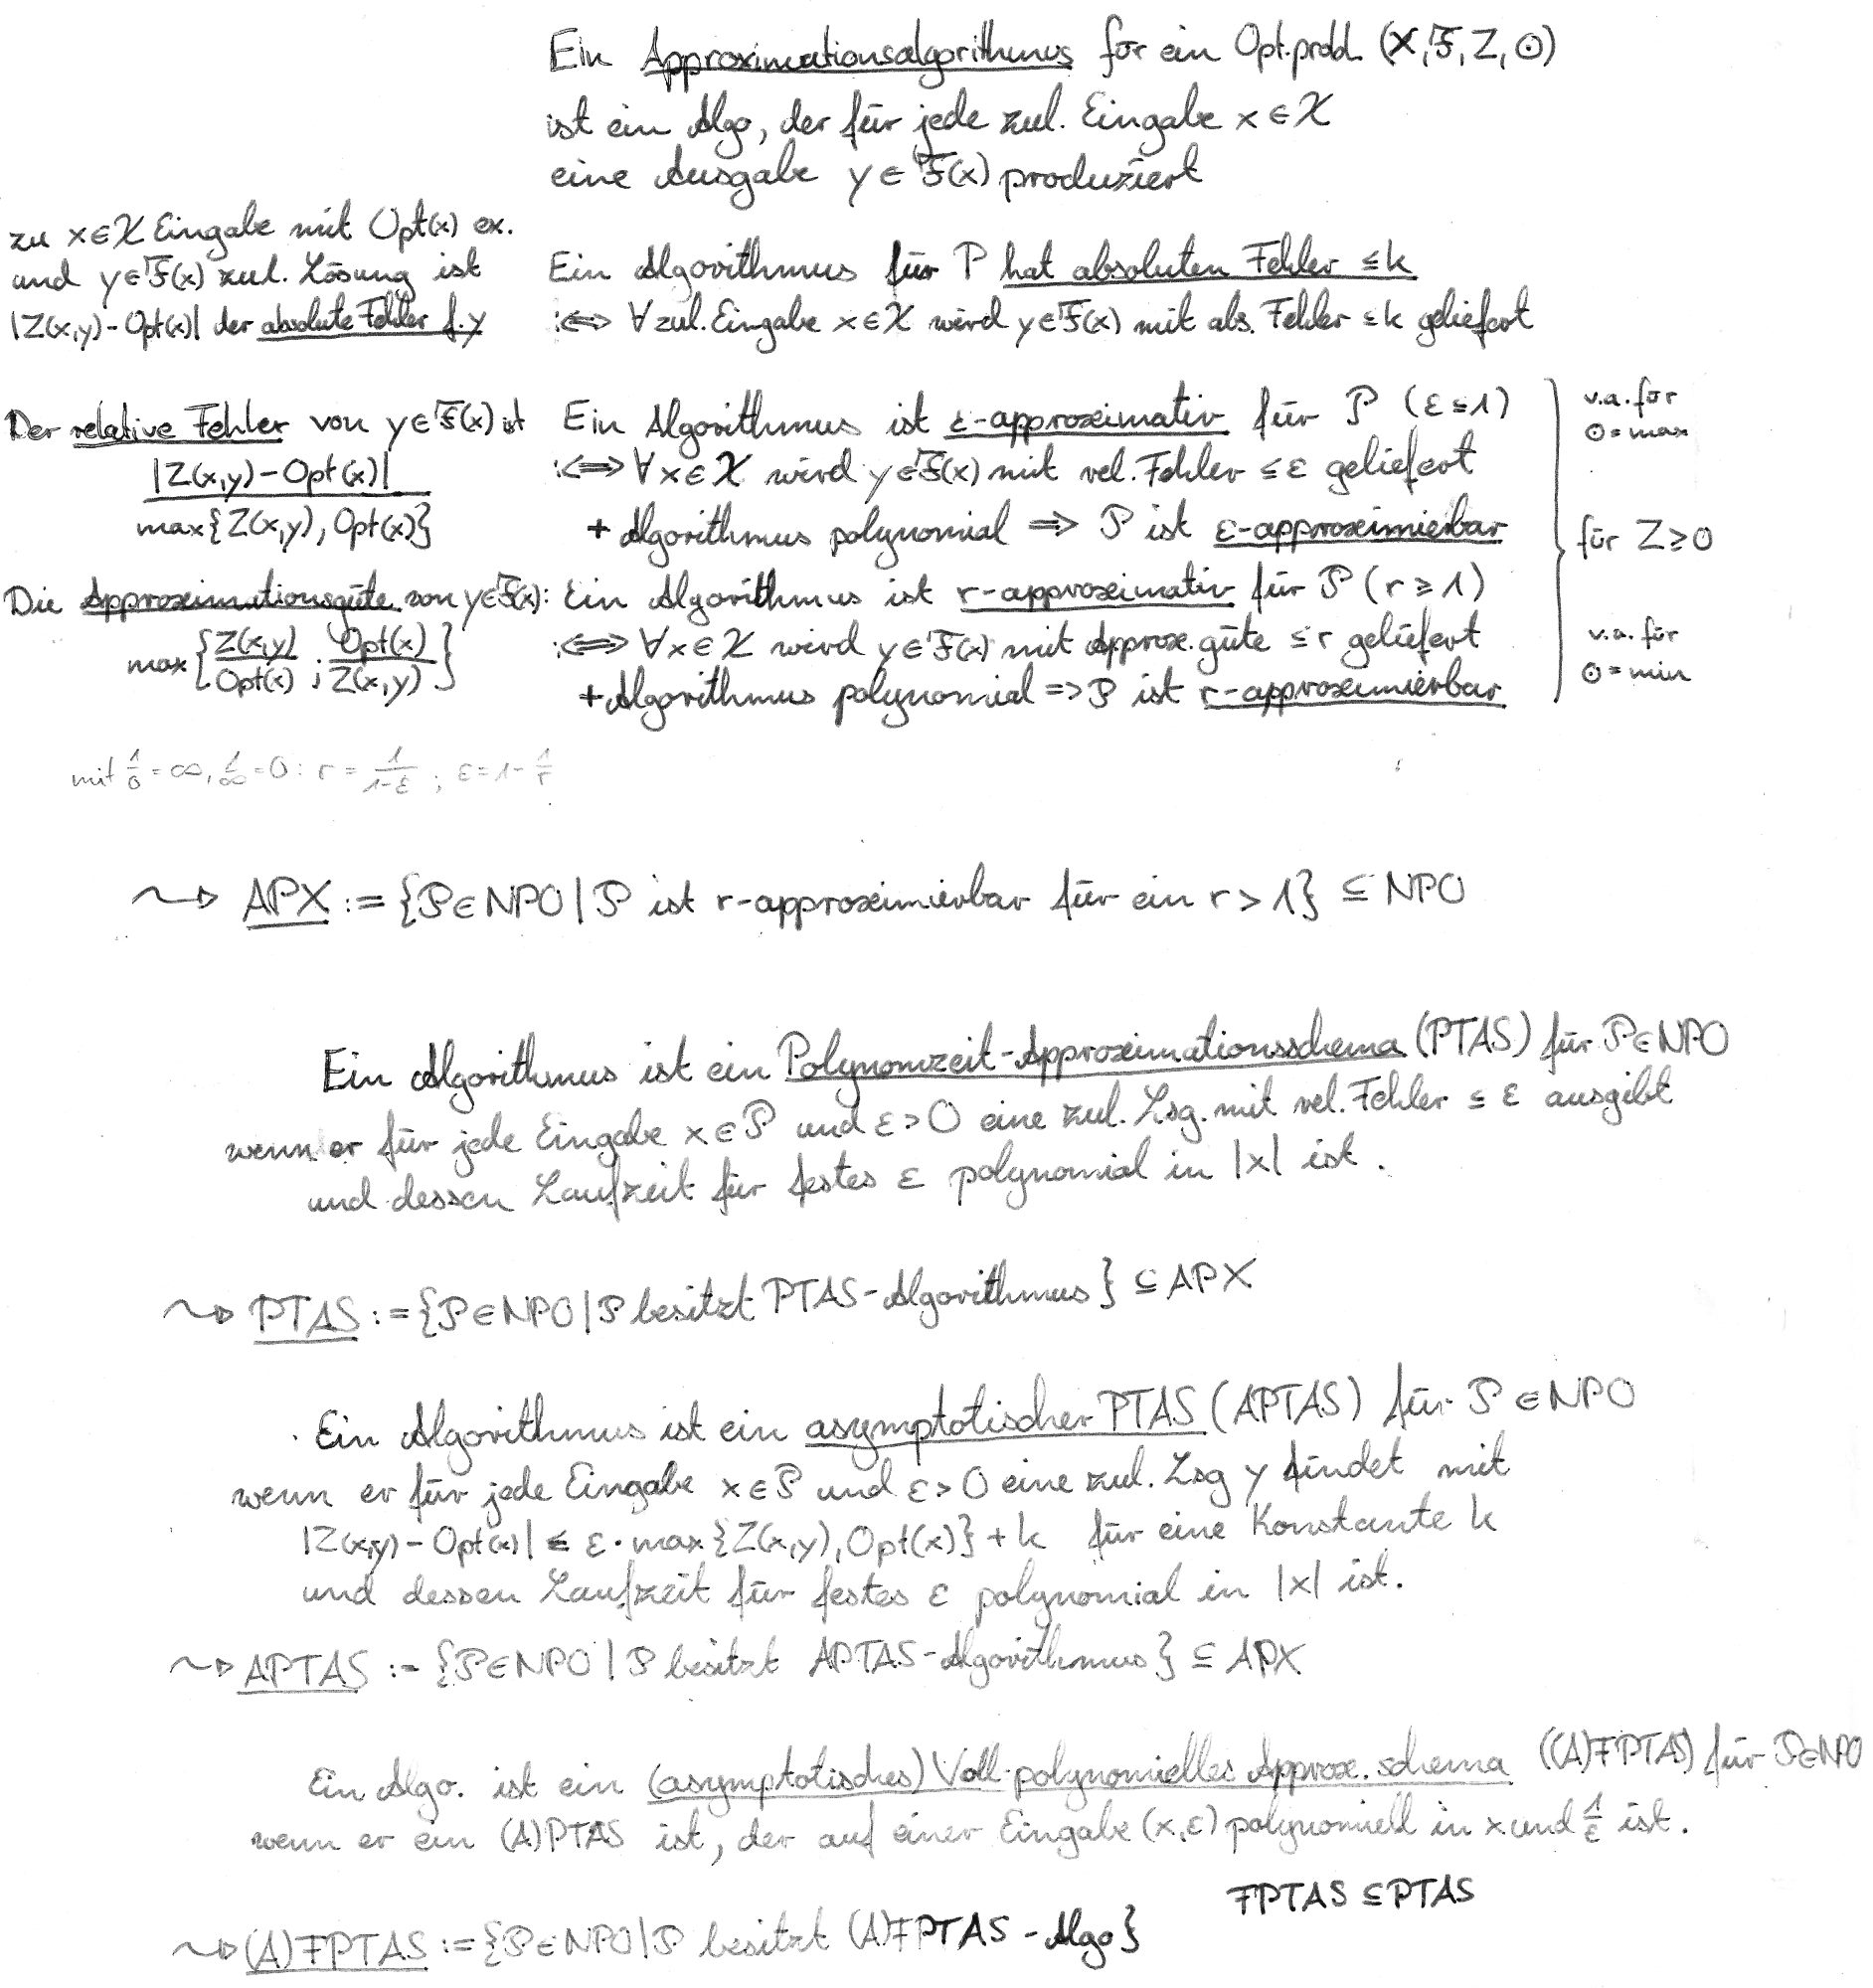 Ein Approximationsalgorithmus für ein Opt.probl. (X, F, Z, ⊙)
ist ein Algo, der für jede zul. Eingabe x ∈ X
eine Ausgabe y ∈ F(x) produziert
zu x ∈ X Eingabe mit Opt(x) ex.
und y ∈ F(x) zul. Lösung ist
|Z(x,y) - Opt(x)| der absolute Fehler f. y
Ein Algorithmus für P hat absoluten Fehler ≤ k
:⇔ ∀ zul. Eingabe x ∈ X wird y ∈ F(x) mit abs. Fehler ≤ k geliefert
Der relative Fehler von y ∈ F(x) ist
|Z(x,y) - Opt(x)|
max{Z(x,y), Opt(x)}
Ein Algorithmus ist ε-approximativ für P (ε ≤ 1)
:⇔ ∀ x ∈ X wird y ∈ F(x) mit rel. Fehler ≤ ε geliefert
+ Algorithmus polynomial ⇒ P ist ε-approximierbar
v.a. für
⊙ = max
für Z ≥ 0
Die Approximationsgüte von y ∈ F(x):
max{Z(x,y)/Opt(x) ; Opt(x)/Z(x,y)}
Ein Algorithmus ist r-approximativ für P (r ≥ 1)
:⇔ ∀ x ∈ X wird y ∈ F(x) mit Approx.güte ≤ r geliefert
+ Algorithmus polynomial => P ist r-approximierbar
v.a. für
⊙ = min
mit 1/0 = ∞, 1/∞ = 0 : r = 1/(1-ε) ; ε = 1 - 1/r
⇝ APX := {P ∈ NPO | P ist r-approximierbar für ein r > 1} ⊆ NPO
Ein Algorithmus ist ein Polynomzeit-Approximationsschema (PTAS) für P ∈ NPO
wenn er für jede Eingabe x ∈ P und ε > 0 eine zul. Lsg. mit rel. Fehler ≤ ε ausgibt
und dessen Laufzeit für festes ε polynomial in |x| ist.
⇝ PTAS := {P ∈ NPO | P besitzt PTAS-Algorithmus} ⊆ APX
Ein Algorithmus ist ein asymptotischer PTAS (APTAS) für P ∈ NPO
wenn er für jede Eingabe x ∈ P und ε > 0 eine zul. Lsg y findet mit
|Z(x,y) - Opt(x)| ≤ ε · max{Z(x,y), Opt(x)} + k für eine Konstante k
und dessen Laufzeit für festes ε polynomial in |x| ist.
⇝ APTAS := {P ∈ NPO | P besitzt APTAS-Algorithmus} ⊆ APX
Ein Algo. ist ein (asymptotisches) Voll-polynomielles Approx.schema ((A)FPTAS) für P ∈ NPO
wenn er ein (A)PTAS ist, der auf einer Eingabe (x, ε) polynomiell in x und 1/ε ist.
FPTAS ⊆ PTAS
⇝ (A)FPTAS := {P ∈ NPO | P besitzt (A)FPTAS - Algo}